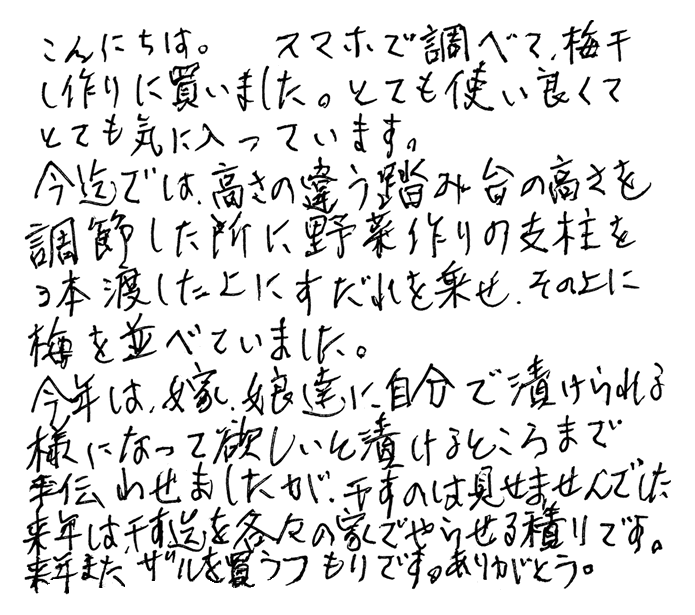 こんにちは。　スマホで調べて、梅干
し作りに買いました。とても使い良くて
とても気に入っています。
今迄では、高さの違う踏み台の高さを
調節した所に野菜作りの支柱を
3本渡した上にすだれを乗せ、その上に
梅を並べていました。
今年は、嫁、娘達に、自分で漬けられる
様になって欲しいと漬けるところまで
手伝わせましたが、干すのは見せませんでした
来年は、干す迄を各々の家でやらせる積りです。
来年また、ザルを買うつもりです。ありがとう。